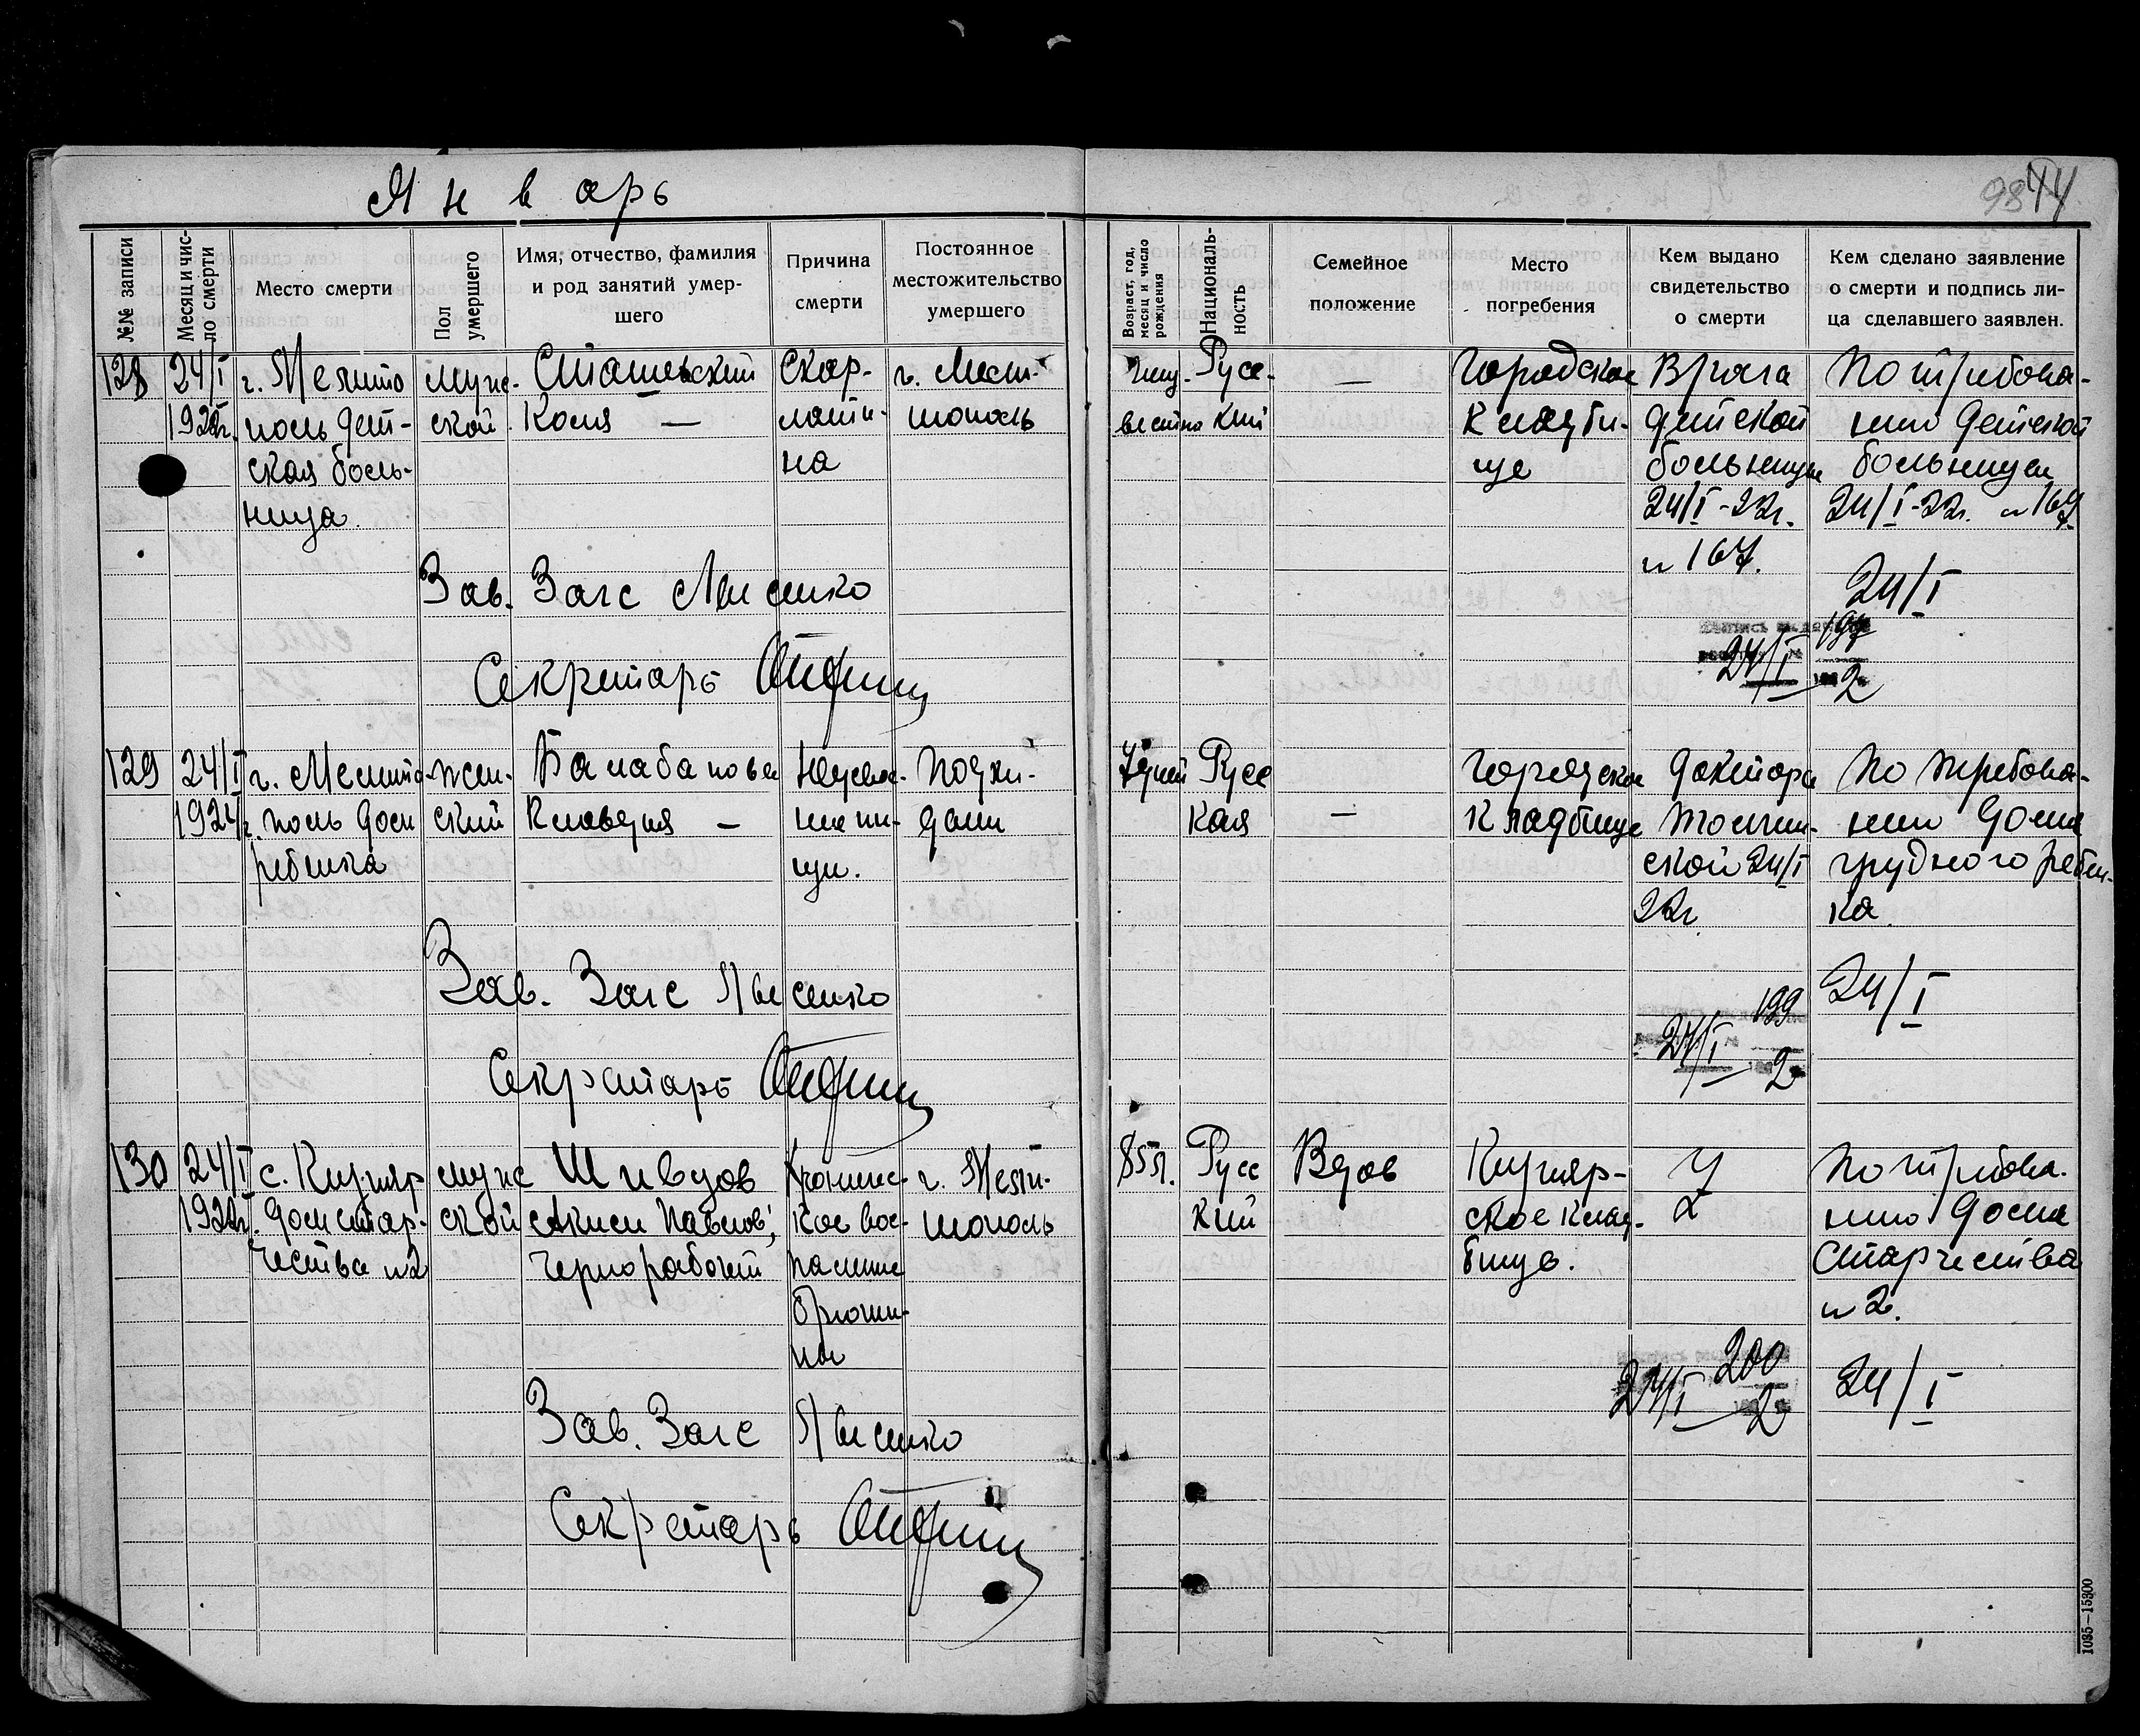 Январь
98 44
№№ записи
Месяц и число смерти
Место смерти
Пол умершего
Имя, отчество, фамилия
и род занятий умер-
шего
Причина
смерти
Постоянное
местожительство
умершего
Возраст, год,
месяц и число
рождения
Националь-
ность
Семейное
положение
Место
погребения
Кем выдано
свидетельство
о смерти
Кем сделано заявление
о смерти и подпись ли-
ца сделавшего заявлен.
128
24/I
1922г.
г. Мелито
поль Дет-
ская боль-
ница.
муж-
ской
Сташевский
Коля —
Скар-
лати-
на
г. Мели-
тополь
Неиз-
вестно
Русс-
кий
—
Городское
кладби-
ще
Врача
Детской
больницы
24/I-22г.
№ 167.
По требова-
нию Детской
больницы
24/I-22г. № 167
Зав. Загс Лысенко
24/I
Секретарь
198
24/I
2
129
24/I
1922г.
г. Мелито-
поль Дом
ребенка
жен-
ский
Балабанова
Клавдия —
Недоеда-
ние пи-
щи.
Подки-
дыш
7 дней
Русс
кая
—
Городское
кладбище
Доктора
24/I
22г.
По требова-
нию Дома
грудного ребен-
ка
Зав. Загс Лысенко
24/I
Секретарь
199
24/I
2
130
24/I
1922г.
с. Кизияр
Дом стар-
чества №2
муж
ской
Шивцов
Аким Павлов.
Чернорабочий
Хроничес-
кое вос-
паление
брюши-
ны
г. Мели-
тополь
85л.
Русс
кий
Вдов
Кизияр-
ское клад-
бище.
По требова-
нию Дома
Старчества
№ 2.
200
24/I
2
24/I
Зав. Загс Лысенко
Секретарь
1035—15300